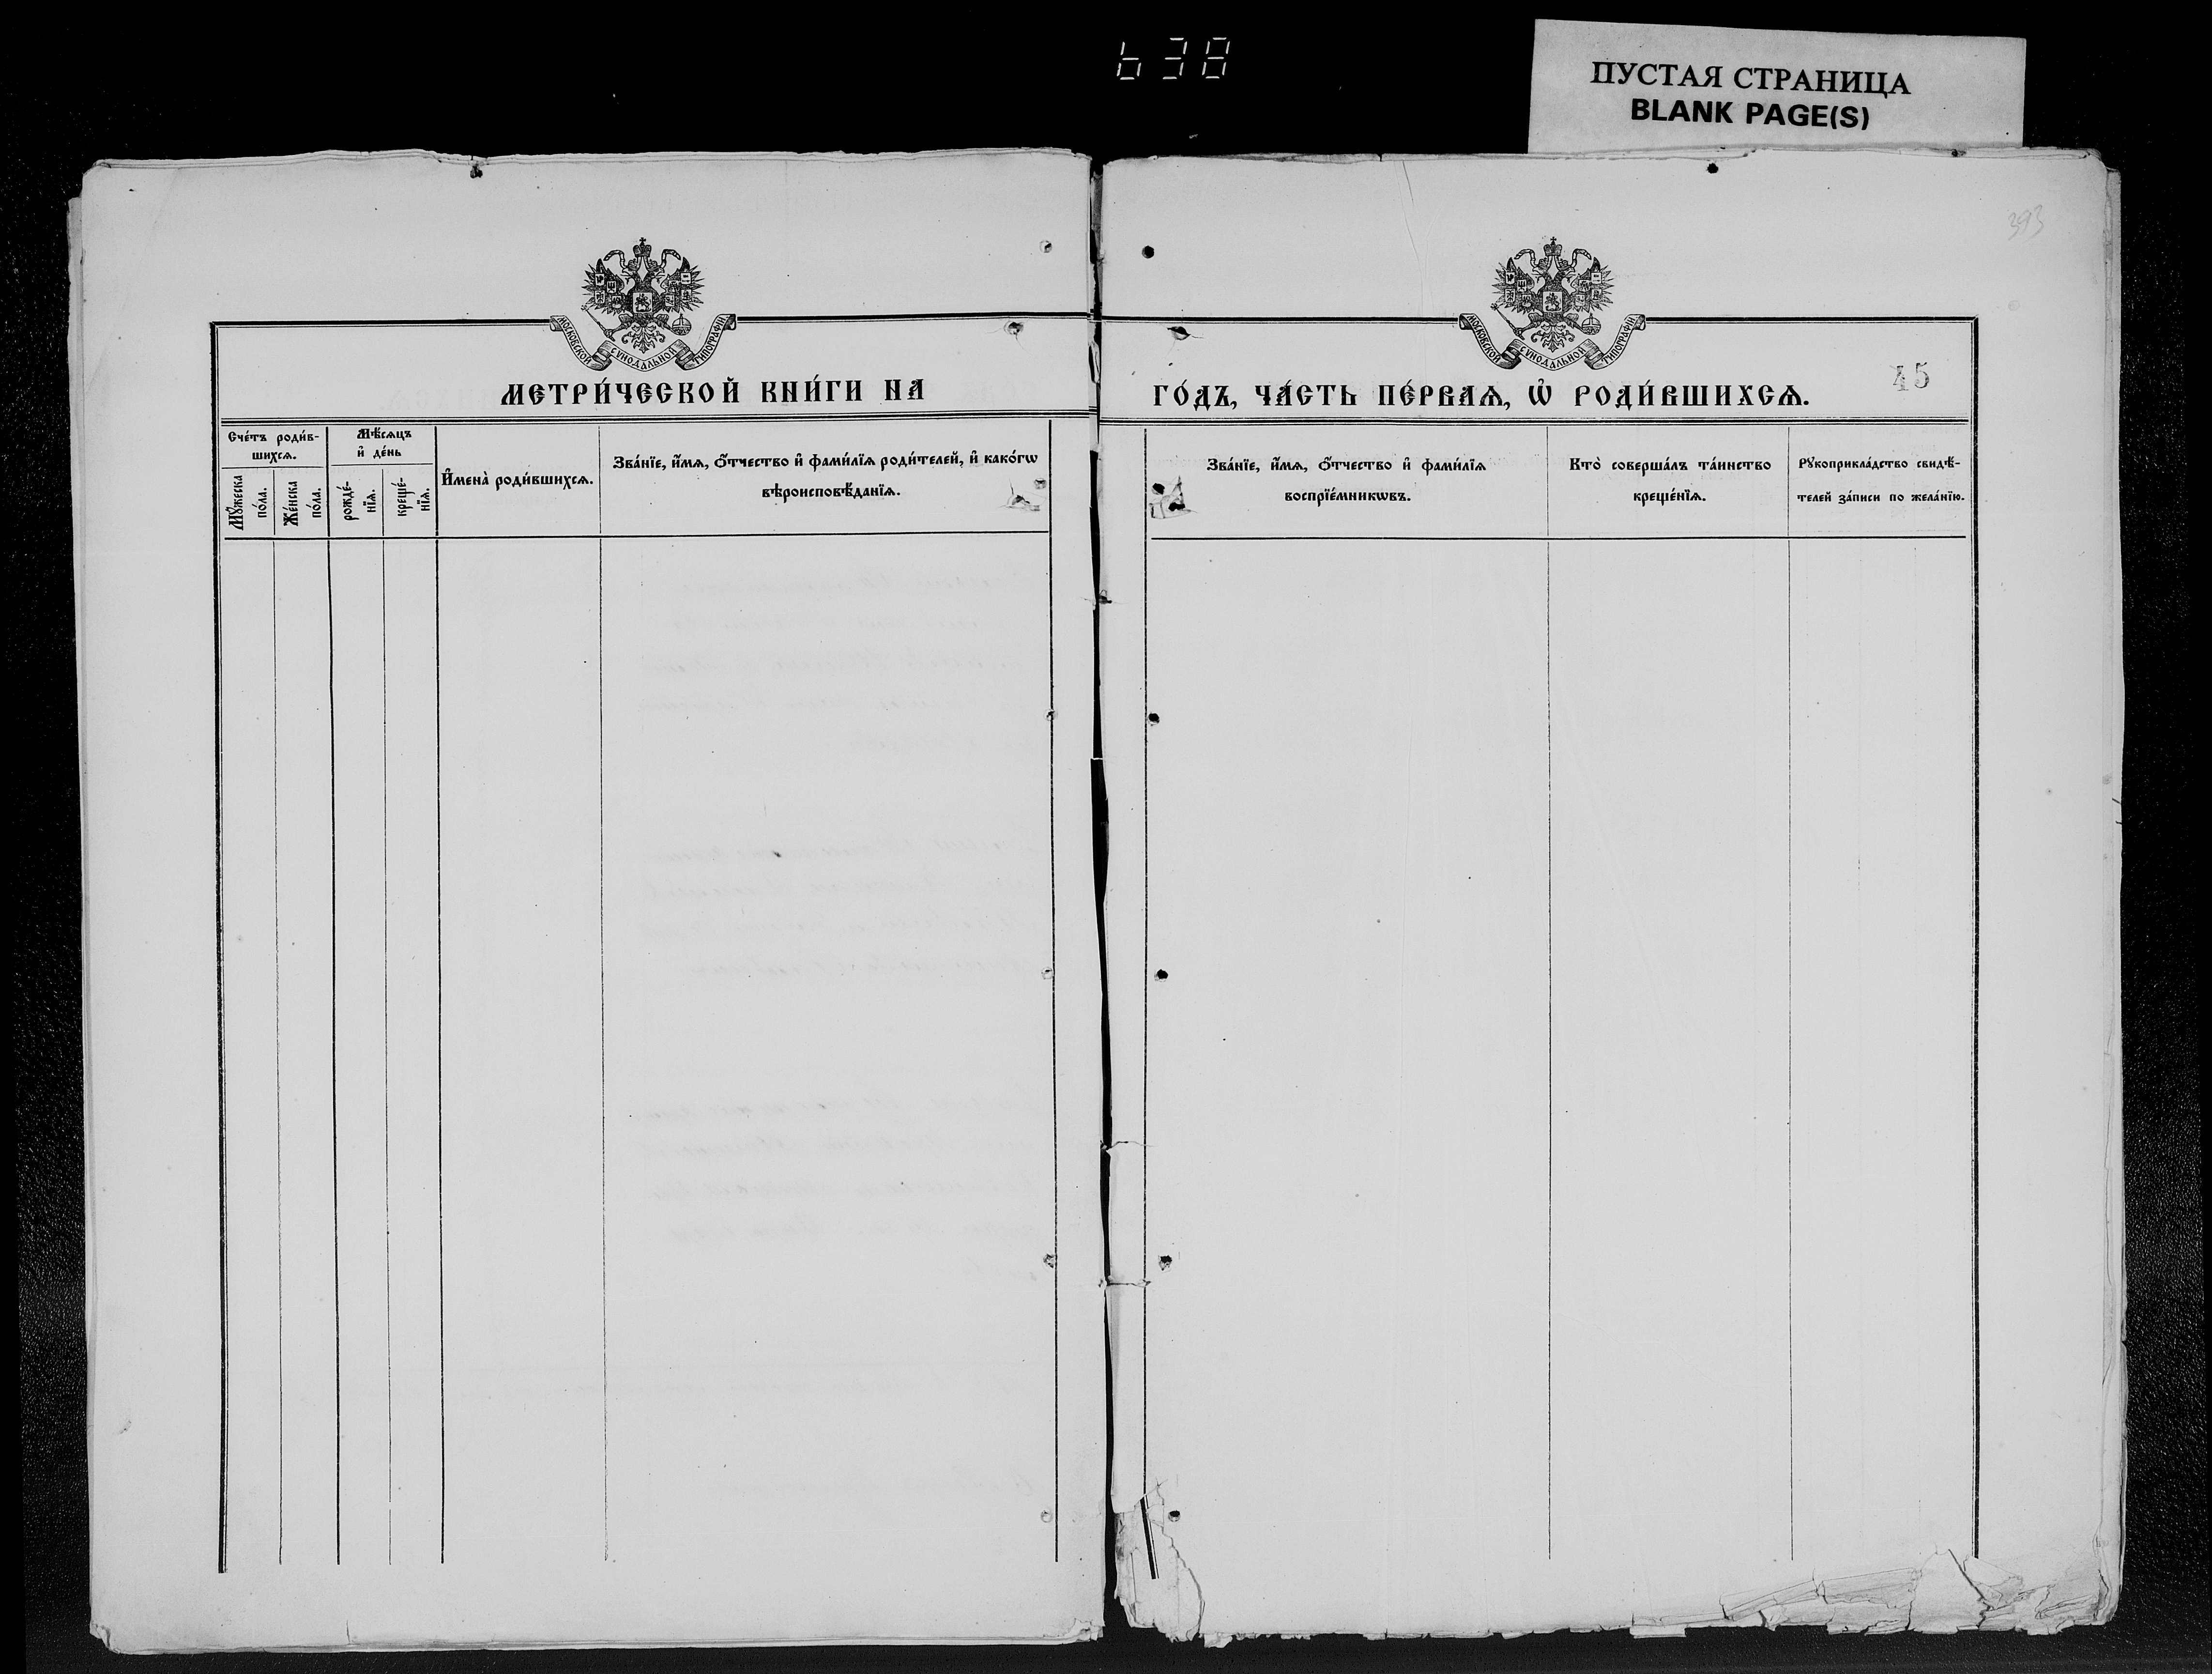 638
ПУСТАЯ СТРАНИЦА
BLANK PAGE(S)
393
МОСКОВСКОЙ СѴНОДАЛЬНОЙ ТИПОГРАФІИ
МОСКОВСКОЙ СѴНОДАЛЬНОЙ ТИПОГРАФІИ
МЕТРИ́ЧЕСКОЙ КНИ́ГИ НА
ГО́ДЪ, ЧА́СТЬ ПЕ́РВАѦ, Ѡ҆ РОДИ́ВШИХСѦ.
45
Сче́тъ роди́в-
шихсѧ.
Мꙋ́жеска
по́ла.
Же́нска
по́ла.
Мѣ́сѧцъ
и҆ де́нь
рожде́-
нїѧ.
креще́-
нїѧ.
И҆мена̀ роди́вшихсѧ.
Зва́нїе, и҆́мѧ, ѻ҆́тчество и҆ фами́лїѧ роди́телей, и҆ како́гѡ
вѣроисповѣ́данїѧ.
Зва́нїе, и҆́мѧ, ѻ҆́тчество и҆ фами́лїѧ
воспрїе́мникѡвъ.
Кто̀ соверша́лъ та́инство
креще́нїѧ.
Рꙋкоприкла́дство свидѣ́-
телей за́писи по жела́нїю.